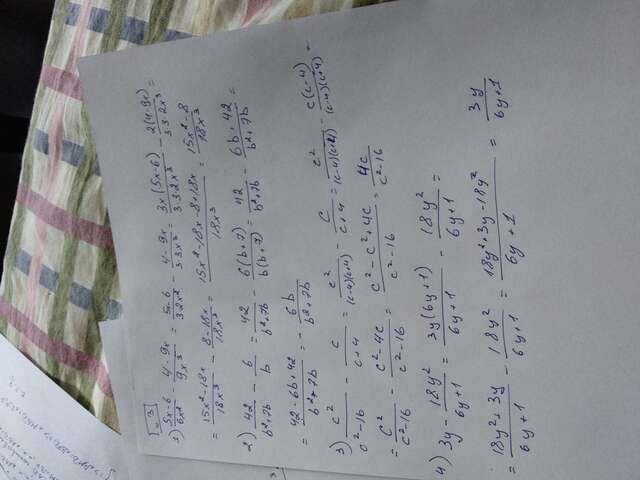 №3
1) (5x-6)/(6x²) - (4-9x)/(9x³) = (5x-6)/(3·2x²) - (4-9x)/(3·3x³) = (3x(5x-6))/(3·3·2x³) - (2(4-9x))/(3·3·2x³) =
= (15x²-18x)/(18x³) - (8-18x)/(18x³) = (15x²-18x-8+18x)/(18x³) = (15x²-8)/(18x³)
2) 42/(b²+7b) - 6/b = 42/(b²+7b) - (6(b+7))/(b(b+7)) = 42/(b²+7b) - (6b+42)/(b²+7b) =
= (42-6b+42)/(b²+7b) = - 6b/(b²+7b)
3) c²/(c²-16) - c/(c+4) = c²/((c-4)(c+4)) - c/(c+4) = c²/((c-4)(c+4)) - (c(c-4))/((c-4)(c+4)) =
= c²/(c²-16) - (c²-4c)/(c²-16) = (c²-c²+4c)/(c²-16) = 4c/(c²-16)
4) 3y - 18y²/(6y+1) = (3y(6y+1))/(6y+1) - 18y²/(6y+1) =
= (18y²+3y)/(6y+1) - 18y²/(6y+1) = (18y²+3y-18y²)/(6y+1) = 3y/(6y+1)